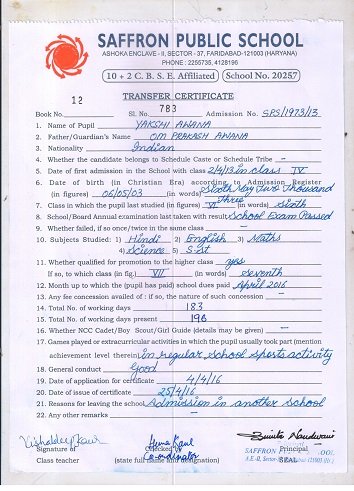 SAFFRON PUBLIC SCHOOL
ASHOKA ENCLAVE - II, SECTOR - 37, FARIDABAD-121003 (HARYANA)
PHONE : 2255735, 4128196
10 + 2 C. B. S. E. Affiliated School No. 20257
TRANSFER CERTIFICATE
Book No. 12 Sl. No. 783 Admission No. SPS/1973/13
1. Name of Pupil YAKSHI AWANA
2. Father/Guardian's Name OM PRAKASH AWANA
3. Nationality Indian
4. Whether the candidate belongs to Schedule Caste or Schedule Tribe -
5. Date of first admission in the School with class 2/4/13 in class IV
6. Date of birth (in Christian Era) according to Admission Register
(in figures) 06/05/03 (in words) Sixth May two thousand three
7. Class in which the pupil last studied (in figures) VI (in words) Sixth
8. School/Board Annual examination last taken with result School Exam Passed
9. Whether failed, if so once/twice in the same class -
10. Subjects Studied : 1) Hindi 2) English 3) Maths
4) Science 5) S.St
11. Whether qualified for promotion to the higher class yes
If so, to which class (in fig.) VII (in words) seventh
12. Month up to which the (pupil has paid) school dues paid April 2016
13. Any fee concession availed of : if so, the nature of such concession -
14. Total No. of working days 183
15. Total No. of working days present 196
16. Whether NCC Cadet/Boy Scout/Girl Guide (details may be given) -
17. Games played or extracurricular activities in which the pupil usually took part (mention
achievement level therein) in regular school sports activity
18. General conduct Good
19. Date of application for certificate 4/4/16
20. Date of issue of certificate 25/4/16
21. Reasons for leaving the school Admission in another school
22. Any other remarks -
Vishaldeep Kaur Hema Kaul Binita Nandwani
Signature of Checked by Principal
Class teacher (state full name and designation) SEAL
Co-ordinator